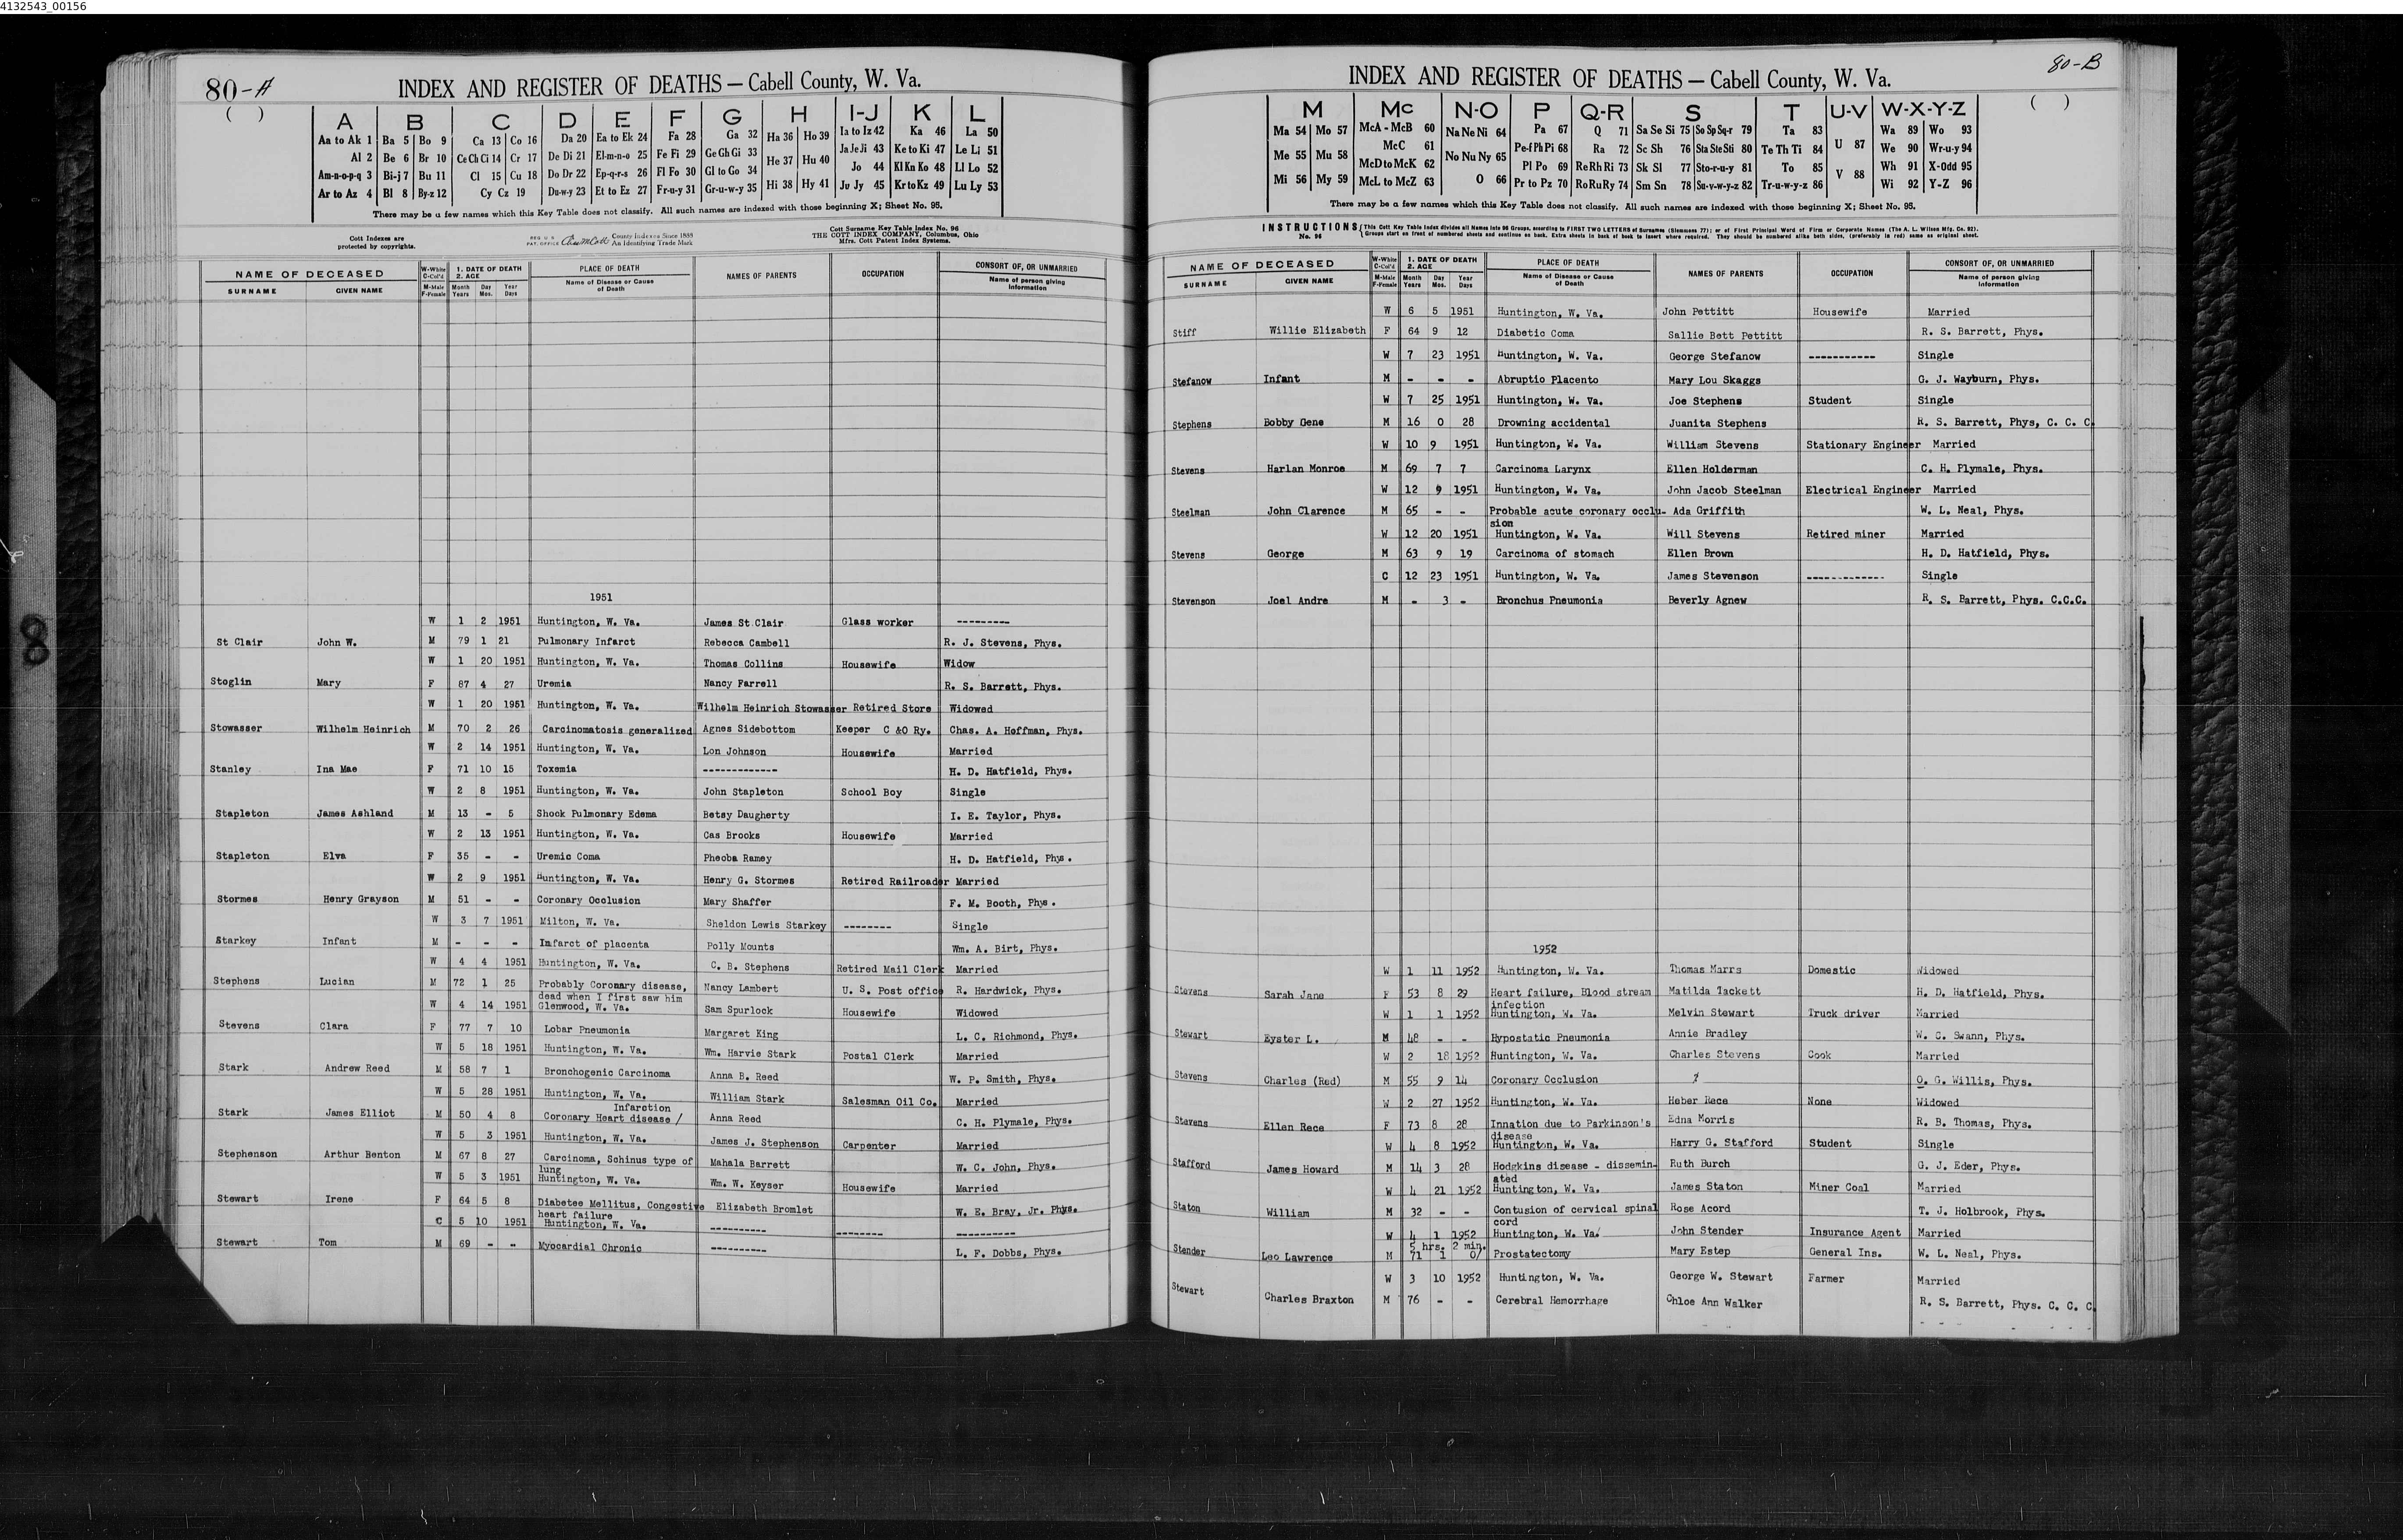 4132543_00156
80-A
INDEX AND REGISTER OF DEATHS — Cabell County, W. Va.
( )
A B C D E F G H I-J K L
Aa to Ak 1 Ba 5 Bo 9 Ca 13 Co 16 Da 20 Ea to Ek 24 Fa 28 Ga 32 Ha 36 Ho 39 Ia to Iz 42 Ka 46 La 50
Al 2 Be 6 Br 10 Ce Ch Ci 14 Cr 17 De Di 21 El-m-n-o 25 Fe Fi 29 Ge Gh Gi 33 He 37 Hu 40 Ja Je Ji 43 Ke to Ki 47 Le Li 51
Am-n-o-p-q 3 Bi-j 7 Bu 11 Cl 15 Cu 18 Do Dr 22 Ep-q-r-s 26 Fl Fo 30 Gl to Go 34 Hi 38 Hy 41 Jo 44 Kl Kn Ko 48 Ll Lo 52
Ar to Az 4 Bl 8 By-z 12 Cy Cz 19 Du-w-y 23 Et to Ez 27 Fr-u-y 31 Gr-u-w-y 35 Ju Jy 45 Kr to Kz 49 Lu Ly 53
There may be a few names which this Key Table does not classify. All such names are indexed with those beginning X; Sheet No. 95.
Cott Indexes are protected by copyrights.
County Indexes Since 1888 An Identifying Trade Mark
Cott Surname Key Table Index No. 96
THE COTT INDEX COMPANY, Columbus, Ohio
Mfrs. Cott Patent Index Systems.
NAME OF DECEASED W-White C-Col'd 1. DATE OF DEATH 2. AGE PLACE OF DEATH NAMES OF PARENTS OCCUPATION CONSORT OF, OR UNMARRIED
SURNAME GIVEN NAME M-Male F-Female Month Years Day Mos. Year Days Name of Disease or Cause of Death Name of person giving Information
1951
W 1 2 1951 Huntington, W. Va. James St.Clair Glass worker ---------
St Clair John W. M 79 1 21 Pulmonary Infarct Rebecca Cambell R. J. Stevens, Phys.
W 1 20 1951 Huntington, W. Va. Thomas Collins Housewife Widow
Stoglin Mary F 87 4 27 Uremia Nancy Farrell R. S. Barrett, Phys.
W 1 20 1951 Huntington, W. Va. Wilhelm Heinrich Stowasser Retired Store Widowed
Stowasser Wilhelm Heinrich M 70 2 26 Carcinomatosis generalized Agnes Sidebottom Keeper C &O Ry. Chas. A. Hoffman, Phys.
W 2 14 1951 Huntington, W. Va. Lon Johnson Housewife Married
Stanley Ina Mae F 71 10 15 Toxemia ------------- H. D. Hatfield, Phys.
W 2 8 1951 Huntington, W. Va. John Stapleton School Boy Single
Stapleton James Ashland M 13 - 5 Shock Pulmonary Edema Betsy Daugherty I. E. Taylor, Phys.
W 2 13 1951 Huntington, W. Va. Cas Brooks Housewife Married
Stapleton Elva F 35 - - Uremic Coma Pheoba Ramey H. D. Hatfield, Phys.
W 2 9 1951 Huntington, W. Va. Henry G. Stormes Retired Railroader Married
Stormes Henry Grayson M 51 - - Coronary Occlusion Mary Shaffer F. M. Booth, Phys.
W 3 7 1951 Milton, W. Va. Sheldon Lewis Starkey -------- Single
Starkey Infant M - - - Infarct of placenta Polly Mounts Wm. A. Birt, Phys.
W 4 4 1951 Huntington, W. Va. C. B. Stephens Retired Mail Clerk Married
Stephens Lucian M 72 1 25 Probably Coronary disease, Nancy Lambert U. S. Post office R. Hardwick, Phys.
dead when I first saw him
W 4 14 1951 Glenwood, W. Va. Sam Spurlock Housewife Widowed
Stevens Clara F 77 7 10 Lobar Pneumonia Margaret King L. C. Richmond, Phys.
W 5 18 1951 Huntington, W. Va. Wm. Harvie Stark Postal Clerk Married
Stark Andrew Reed M 58 7 1 Bronchogenic Carcinoma Anna B. Reed W. P. Smith, Phys.
W 5 28 1951 Huntington, W. Va. William Stark Salesman Oil Co. Married
Infarction
Stark James Elliot M 50 4 8 Coronary Heart disease / Anna Reed C. H. Plymale, Phys.
W 5 3 1951 Huntington, W. Va. James J. Stephenson Carpenter Married
Stephenson Arthur Benton M 67 8 27 Carcinoma, Schinus type of Mahala Barrett W. C. John, Phys.
lung
W 5 3 1951 Huntington, W. Va. Wm. W. Keyser Housewife Married
Stewart Irene F 64 5 8 Diabetee Mellitus, Congestive Elizabeth Bromlet W. E. Bray, Jr. Phys.
heart failure
C 5 10 1951 Huntington, W. Va. ---------- -------- ----------
Stewart Tom M 69 - - Myocardial Chronic ---------- L. F. Dobbs, Phys.
80-B
INDEX AND REGISTER OF DEATHS — Cabell County, W. Va.
( )
M Mc N-O P Q-R S T U-V W-X-Y-Z
Ma 54 Mo 57 McA - McB 60 Na Ne Ni 64 Pa 67 Q 71 Sa Se Si 75 So Sp Sq-r 79 Ta 83 U 87 Wa 89 Wo 93
Me 55 Mu 58 McC 61 No Nu Ny 65 Pe-f Ph Pi 68 Ra 72 Sc Sh 76 Sta Ste Sti 80 Te Th Ti 84 V 88 We 90 Wr-u-y 94
Mi 56 My 59 McD to McK 62 O 66 Pl Po 69 Re Rh Ri 73 Sk Sl 77 Sto-r-u-y 81 To 85 Wh 91 X-Odd 95
McL to McZ 63 Pr to Pz 70 Ro Ru Ry 74 Sm Sn 78 Su-v-w-y-z 82 Tr-u-w-y-z 86 Wi 92 Y-Z 96
There may be a few names which this Key Table does not classify. All such names are indexed with those beginning X; Sheet No. 95.
INSTRUCTIONS No. 96 This Cott Key Table Index divides all Names into 96 Groups, according to FIRST TWO LETTERS of Surnames (Siemmens 77); or of First Principal Word of Firm or Corporate Names (The A. L. Wilson Mfg. Co. 92).
Groups start on front of numbered sheets and continue on back. Extra sheets in back of book to insert where required. They should be numbered alike both sides, (preferably in red) same as original sheet.
NAME OF DECEASED W-White C-Col'd 1. DATE OF DEATH 2. AGE PLACE OF DEATH NAMES OF PARENTS OCCUPATION CONSORT OF, OR UNMARRIED
SURNAME GIVEN NAME M-Male F-Female Month Years Day Mos. Year Days Name of Disease or Cause of Death Name of person giving Information
W 6 5 1951 Huntington, W. Va. John Pettitt Housewife Married
Stiff Willie Elizabeth F 64 9 12 Diabetic Coma Sallie Bett Pettitt R. S. Barrett, Phys.
W 7 23 1951 Huntington, W. Va. George Stefanow ----------- Single
Stefanow Infant M - - - Abruptio Placento Mary Lou Skaggs G. J. Wayburn, Phys.
W 7 25 1951 Huntington, W. Va. Joe Stephens Student Single
Stephens Bobby Gene M 16 0 28 Drowning accidental Juanita Stephens R. S. Barrett, Phys, C. C. C
W 10 9 1951 Huntington, W. Va. William Stevens Stationary Engineer Married
Stevens Harlan Monroe M 69 7 7 Carcinoma Larynx Ellen Holderman C. H. Plymale, Phys.
W 12 9 1951 Huntington, W. Va. John Jacob Steelman Electrical Engineer Married
Steelman John Clarence M 65 - - Probable acute coronary occlu- Ada Griffith W. L. Neal, Phys.
sion
W 12 20 1951 Huntington, W. Va. Will Stevens Retired miner Married
Stevens George M 63 9 19 Carcinoma of stomach Ellen Brown H. D. Hatfield, Phys.
C 12 23 1951 Huntington, W. Va. James Stevenson ------------- Single
Stevenson Joel Andre M - 3 - Bronchus Pneumonia Beverly Agnew R. S. Barrett, Phys. C.C.C.
1952
W 1 11 1952 Huntington, W. Va. Thomas Marrs Domestic Widowed
Stevens Sarah Jane F 53 8 29 Heart failure, Blood stream Matilda Tackett H. D. Hatfield, Phys.
infection
W 1 1 1952 Huntington, W. Va. Melvin Stewart Truck driver Married
Stewart Eyster L. M 48 - - Hypostatic Pneumonia Annie Bradley W. C. Swann, Phys.
W 2 18 1952 Huntington, W. Va. Charles Stevens Cook Married
Stevens Charles (Red) M 55 9 14 Coronary Occlusion ? O. G. Willis, Phys.
W 2 27 1952 Huntington, W. Va. Heber Rece None Widowed
Stevens Ellen Rece F 73 8 28 Innation due to Parkinson's Edna Morris R. B. Thomas, Phys.
disease
W 4 8 1952 Huntington, W. Va. Harry G. Stafford Student Single
Stafford James Howard M 14 3 28 Hodgkins disease - dissemin- Ruth Burch G. J. Eder, Phys.
ated
W 4 21 1952 Huntington, W. Va. James Staton Miner Coal Married
Staton William M 32 - - Contusion of cervical spinal Rose Acord T. J. Holbrook, Phys.
cord
W 4 1 1952 Huntington, W. Va. John Stender Insurance Agent Married
5 hrs. 2 min.
Stender Leo Lawrence M 71 1 0/ Prostatectomy Mary Estep General Ins. W. L. Neal, Phys.
W 3 10 1952 Huntington, W. Va. George W. Stewart Farmer Married
Stewart Charles Braxton M 76 - - Cerebral Hemorrhage Chloe Ann Walker R. S. Barrett, Phys. C. C. C